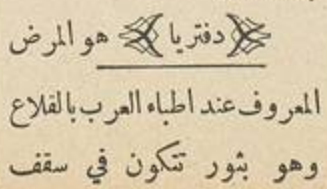 دفتريا هو المرض
المعروف عند اطباء العرب بالقلاع
وهو بثور تتكون في سقف